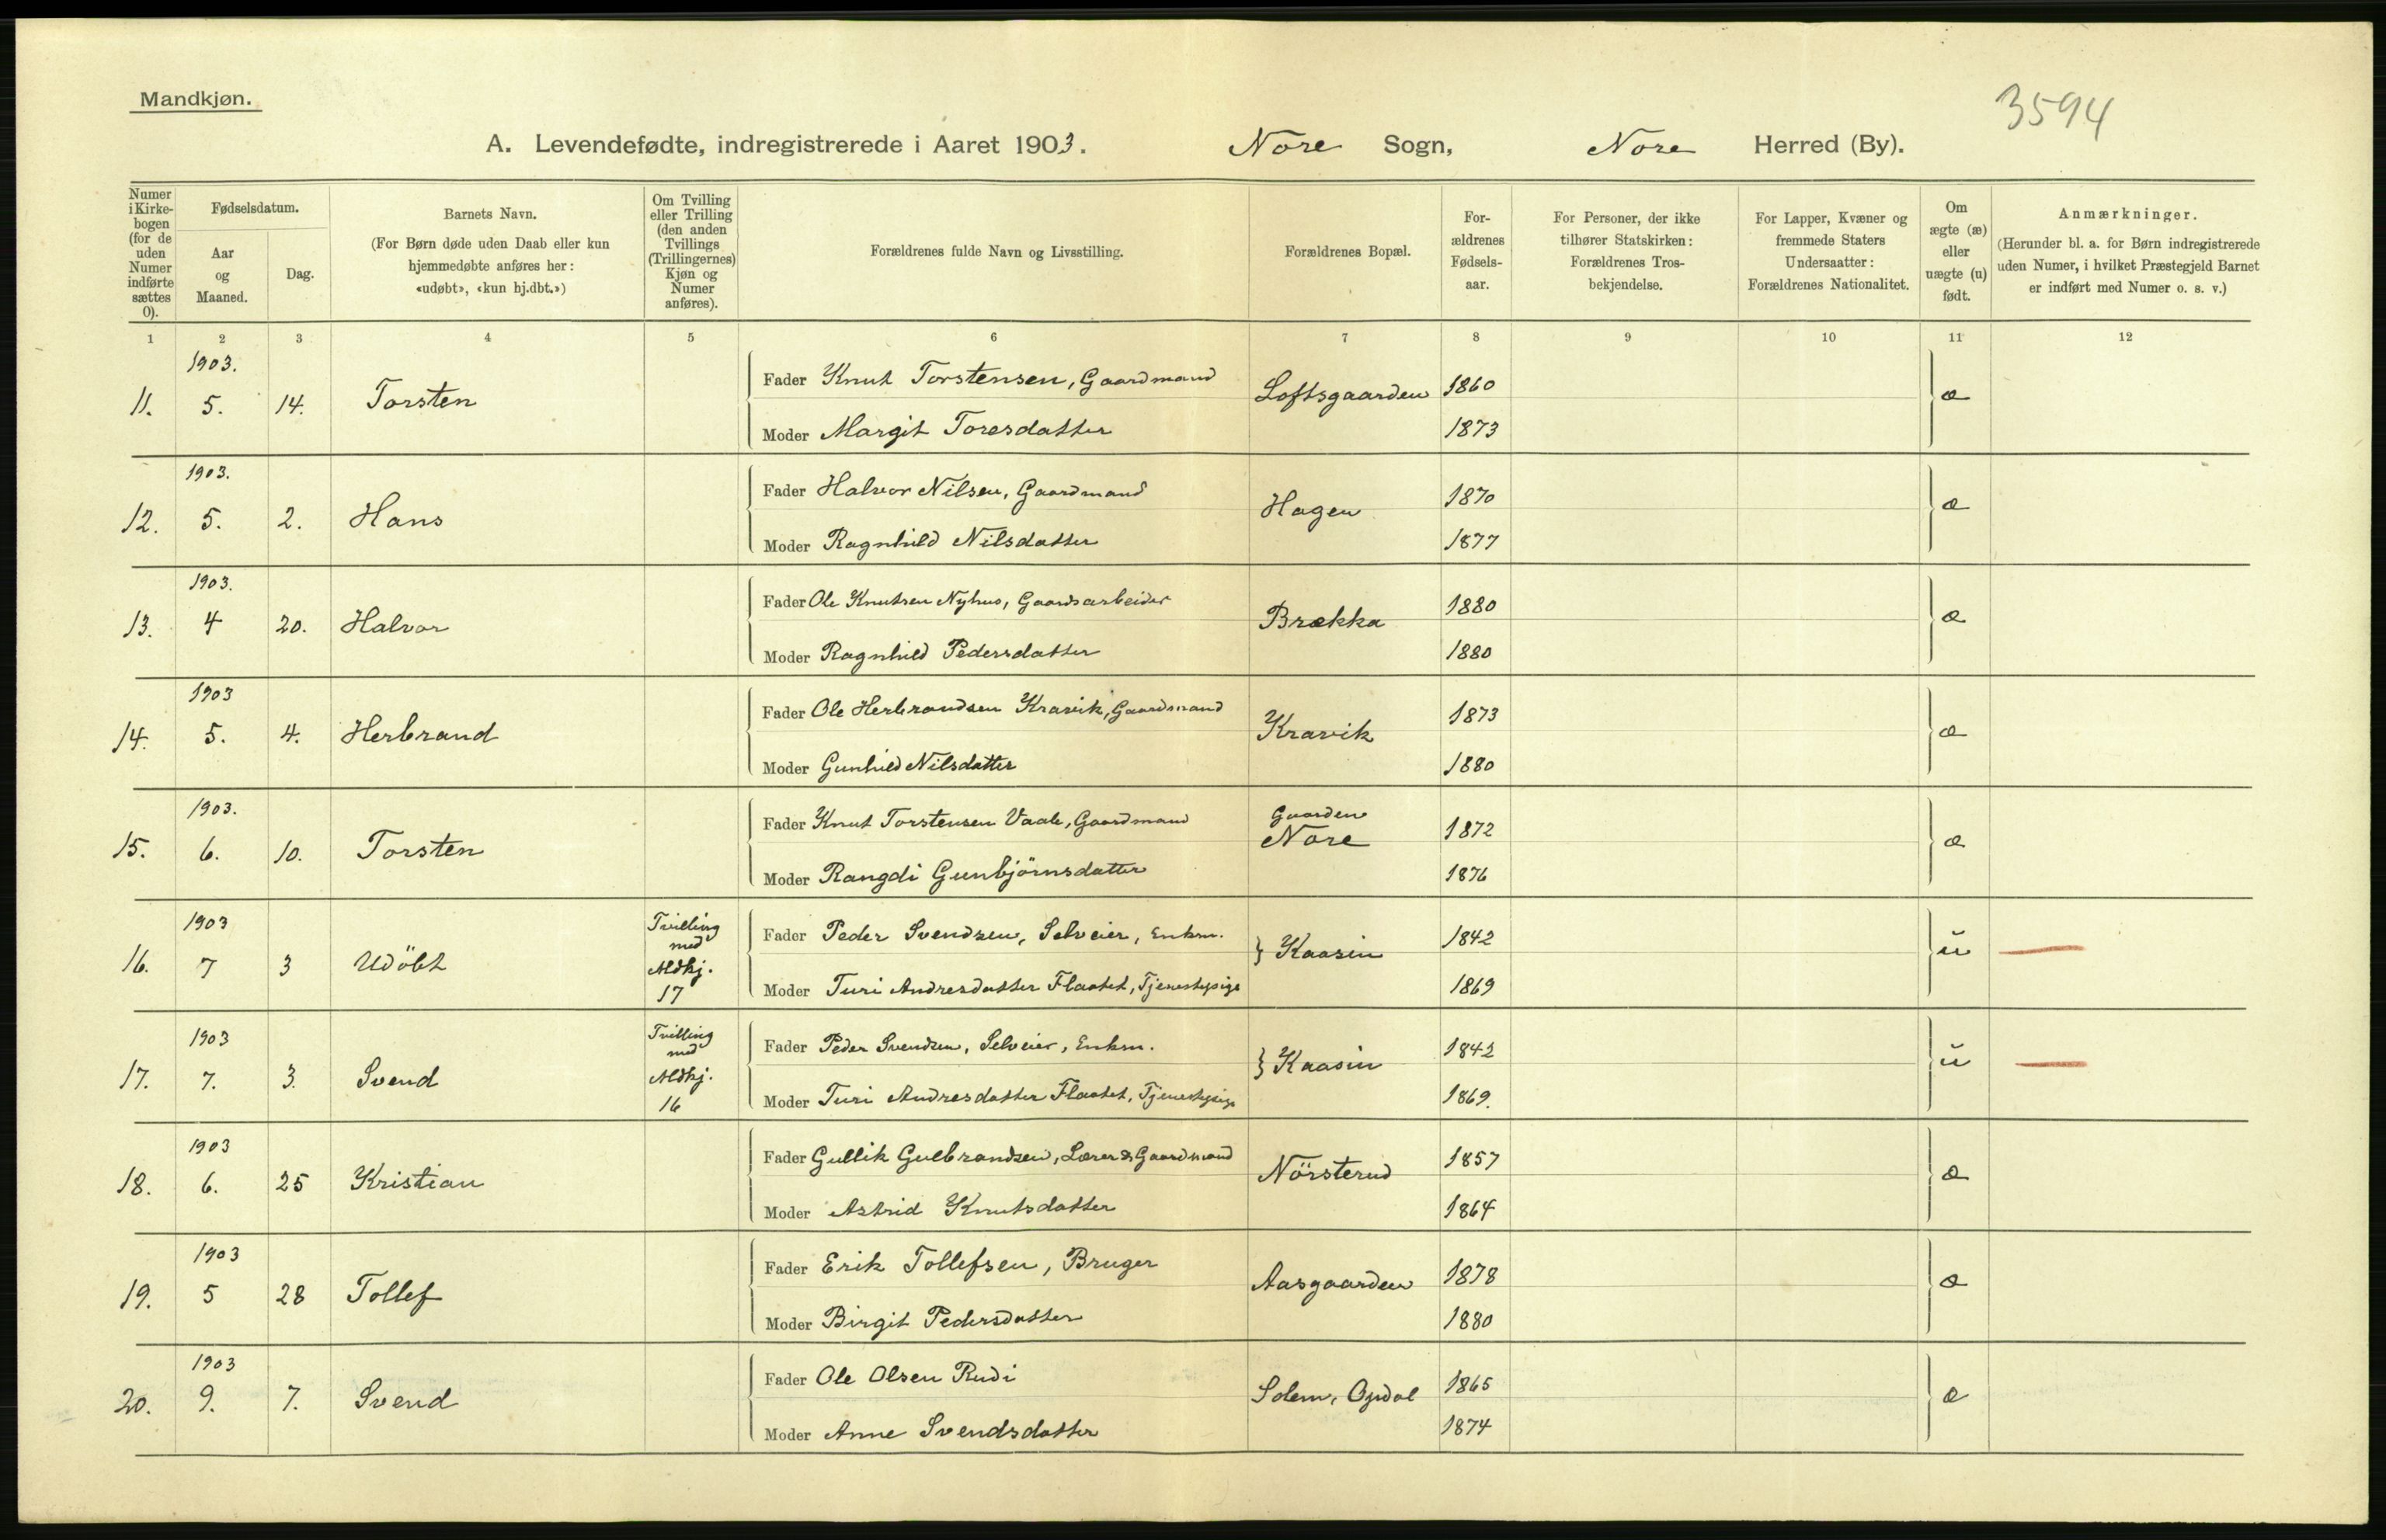 Mandkjøn.
3594
A. Levendefødte, indregistrerede i Aaret 1903. Nore Sogn, Nore Herred (By).
Numer i Kirkebogen (for de uden Numer indførte sættes 0).
Fødselsdatum.
Aar og Maaned.
Dag.
Barnets Navn.
(For Børn døde uden Daab eller kun hjemmedøbte anføres her: «udøbt», «kun hj.dbt.»)
Om Tvilling eller Trilling (den anden Tvillings (Trillingernes) Kjøn og Numer anføres).
Forældrenes fulde Navn og Livsstilling.
Forældrenes Bopæl.
For-ældrenes Fødsels-aar.
For Personer, der ikke tilhører Statskirken: Forældrenes Tros-bekjendelse.
For Lapper, Kvæner og fremmede Staters Undersaatter: Forældrenes Nationalitet.
Om ægte (æ) eller uægte (u) født.
Anmærkninger.
(Herunder bl. a. for Børn indregistrerede uden Numer, i hvilket Præstegjeld Barnet er indført med Numer o. s. v.)
1 2 3 4 5 6 7 8 9 10 11 12
1903.
11. 5. 14. Torsten Fader Knut Torstensen, Gaardmand Loftsgaarden 1860 æ
Moder Margit Toresdatter 1873
1903.
12. 5. 2. Hans Fader Halvor Nilsen, Gaardmand Hagen 1870 æ
Moder Ragnhild Nilsdatter 1877
1903.
13. 4 20. Halvor Fader Ole Knutsen Nyhus, Gaardsarbeider Brækka 1880 æ
Moder Ragnhild Pedersdatter 1880
1903
14. 5. 4. Herbrand Fader Ole Herbrandsen Kravik, Gaardmand Kravik 1873 æ
Moder Gunhild Nilsdatter 1880
1903.
15. 6. 10. Torsten Fader Knut Torstensen Vaale, Gaardmand Gaarden Nore 1872 æ
Moder Rangdi Gunbjörnsdatter 1876
1903
16. 7 3 Udöbt Tvilling med Mdkj. 17 Fader Peder Svendsen, Selveier, Enkm. Kaasin 1842 ŭ
Moder Turi Andresdatter Flaatet, Tjenestepige 1869
1903
17. 7. 3. Svend Tvilling med Mdkj. 16 Fader Peder Svendsen, Selveier, Enkm. Kaasin 1842 ŭ
Moder Turi Andresdatter Flaatet, Tjenestepige 1869.
1903
18. 6. 25 Kristian Fader Gullik Gulbrandsen, Lærer & Gaardmand Nörsterud 1857 æ
Moder Astrid Knutsdatter 1864
1903
19. 5 28 Tollef Fader Erik Tollefsen, Bruger Aasgaarden 1878 æ
Moder Birgit Pedersdatter 1880
1903
20. 9. 7. Svend Fader Ole Olsen Rudi Solem, Opdal 1865 æ
Moder Anne Svendsdatter 1874